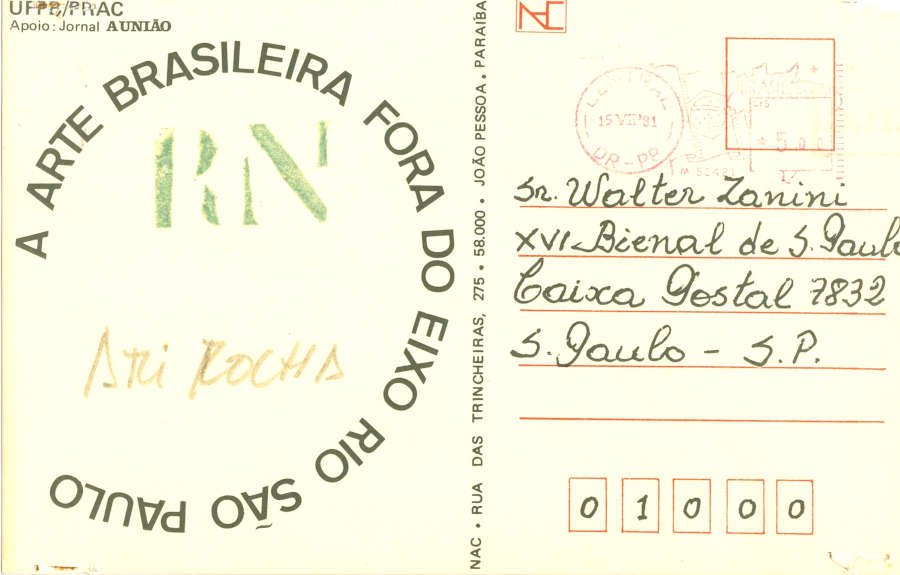 UFPB/PRAC
Apoio: Jornal A UNIÃO
A ARTE BRASILEIRA FORA DO EIXO RIO SÃO PAULO
RN
ARI ROCHA
NAC • RUA DAS TRINCHEIRAS, 275 • 58.000 • JOÃO PESSOA • PARAÍBA
15 VII 81
DR-PB
Sr. Walter Zanini
XVI-Bienal de S. Paulo
Caixa Postal 7832
S. Paulo - S.P.
0 1 0 0 0